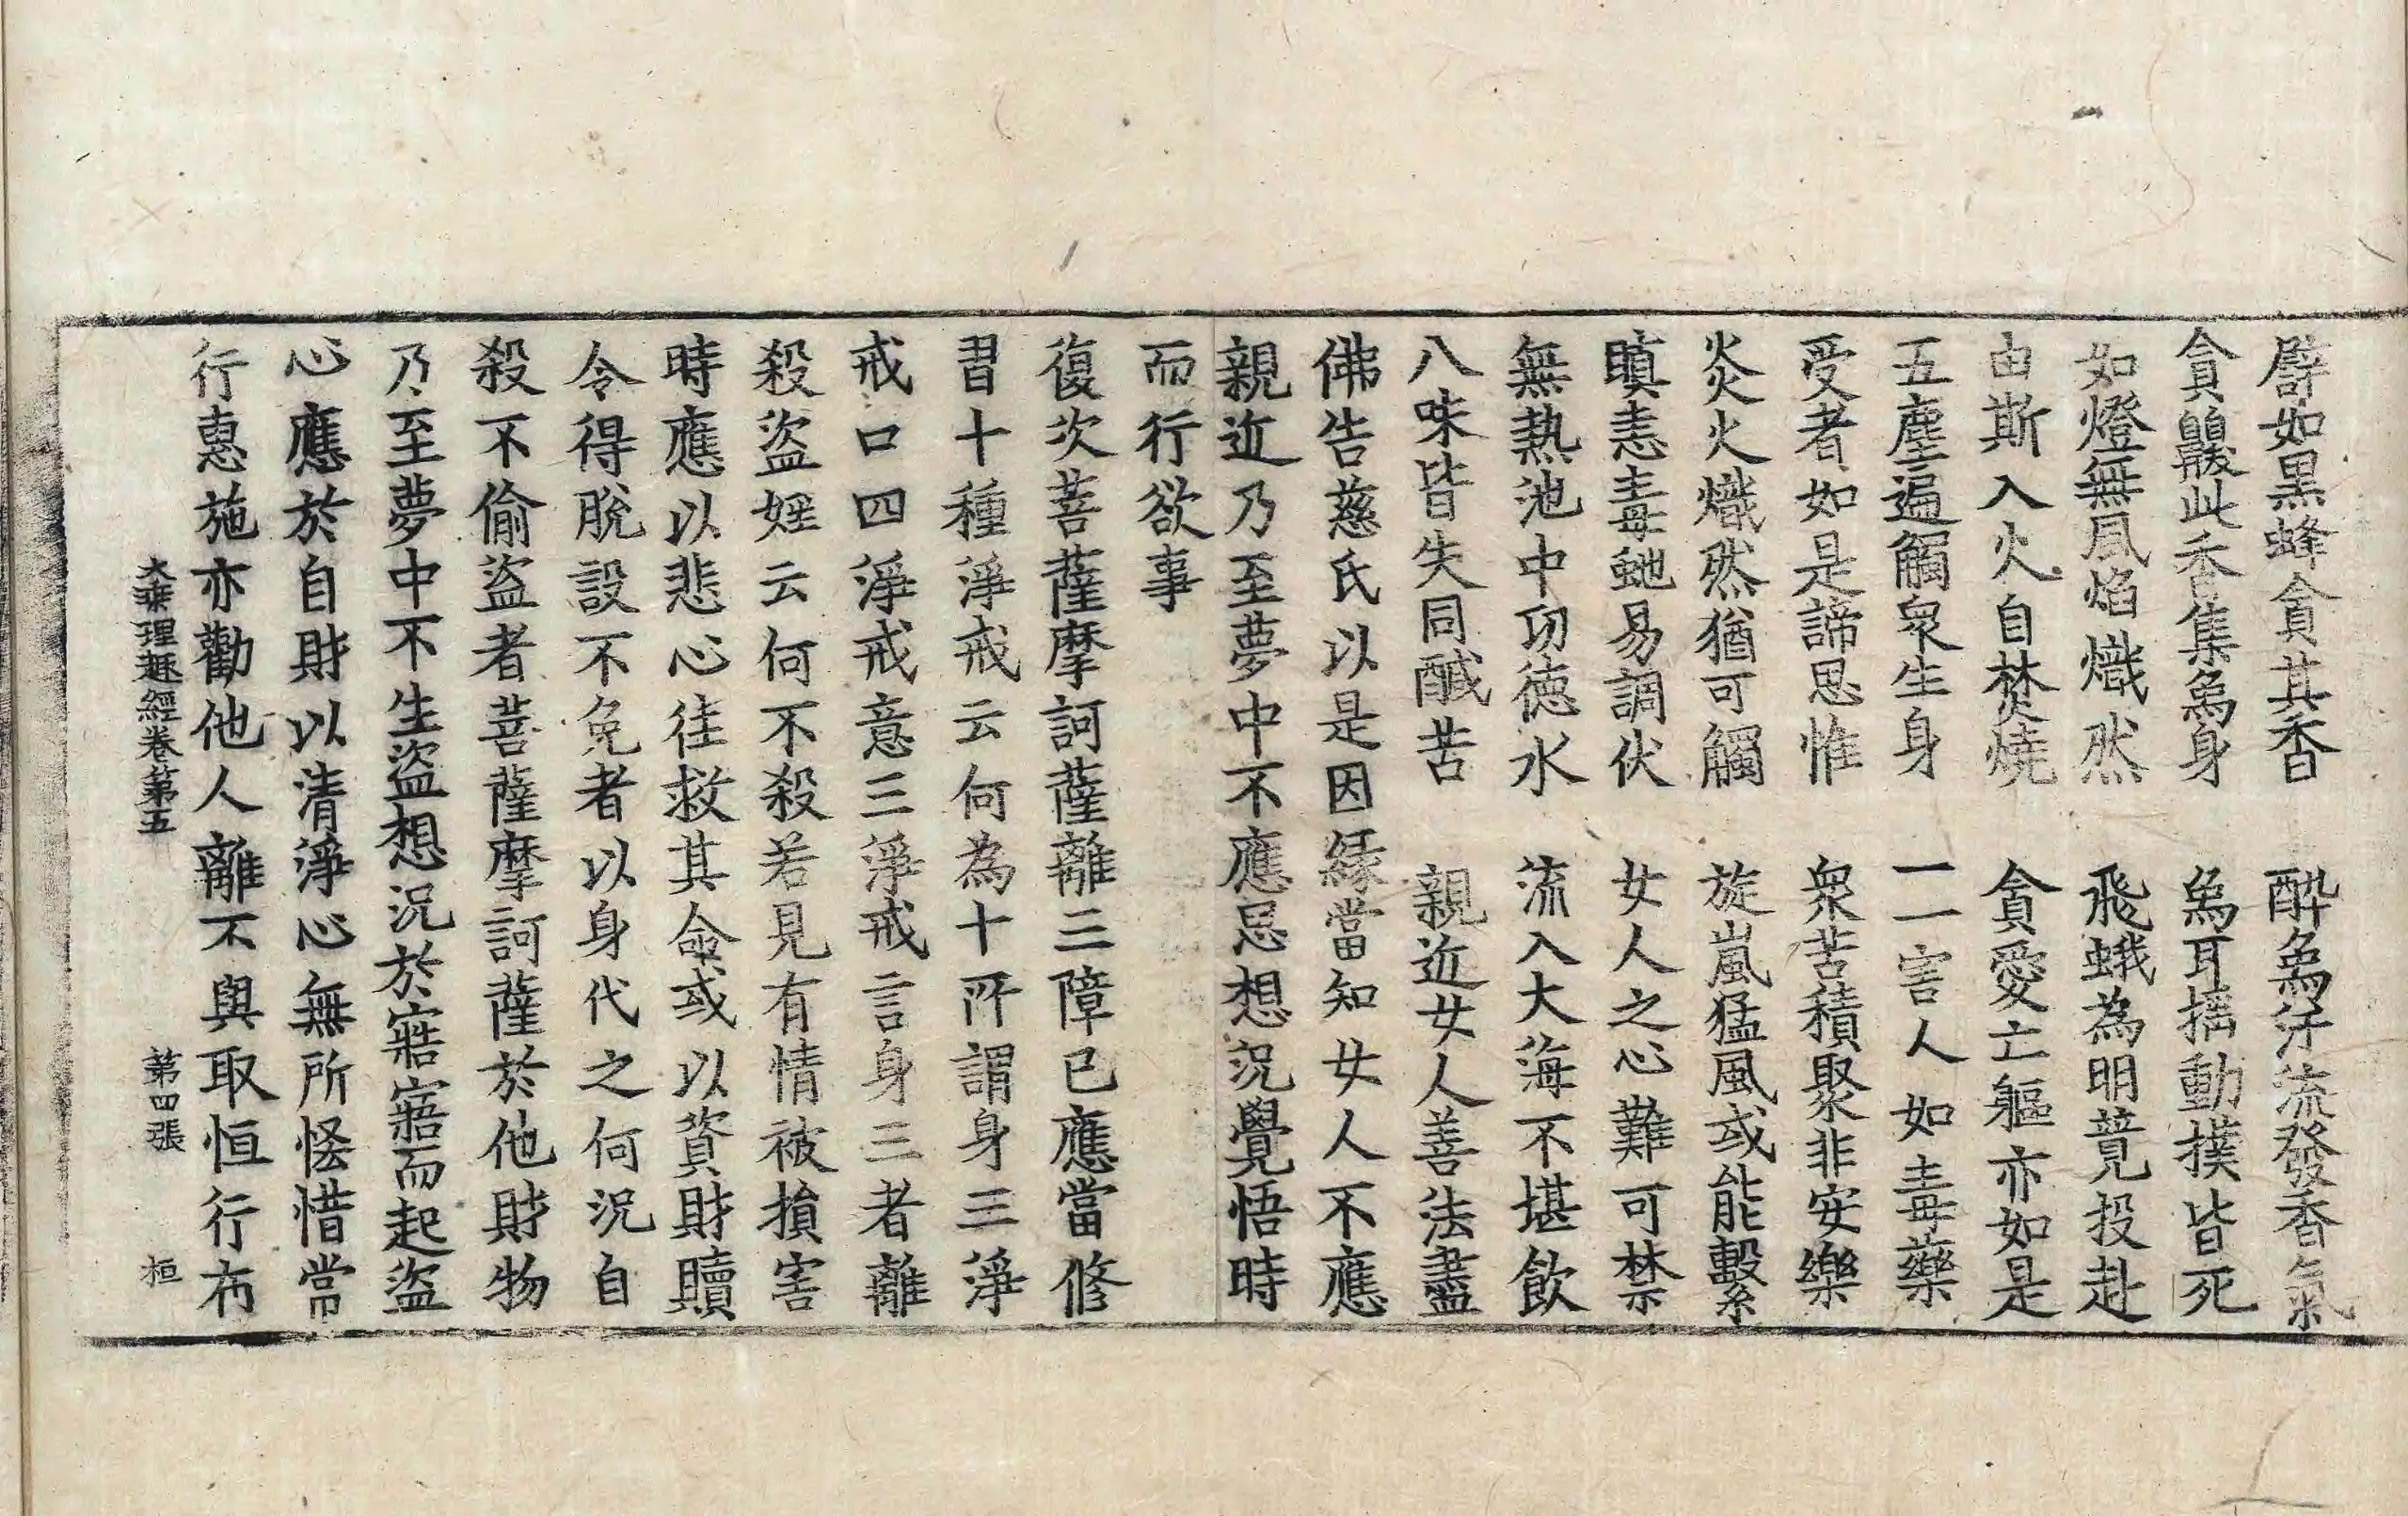 譬如黒蜂貪其香　醉象汗流發香氣
貪齅此香集象身　象耳摛動撲皆死
如燈無風焰熾然　飛蛾為明競投赴
由斯入火自焚燒　貪愛亡軀亦如是
五塵遍觸衆生身　一一害人如毒藥
受者如是諦思惟　衆苦積聚非安樂
炎火熾然猶可觸　旋嵐猛風或能繫
瞋恚毒虵易調伏　女人之心難可禁
無熱池中㓛德水　流入大海不堪飲
八味皆失同醎苦　親近女人善法盡
佛告慈氏以是因緣當知女人不應
親近乃至夢中不應思想況覺悟時
而行欲事
復次菩薩摩訶薩離三障已應當修
習十種淨戒云何為十所謂身三淨
戒口四淨戒意三淨戒言身三者離
殺盜婬云何不殺若見有情被損害
時應以悲心往救其命或以資財贖
令得脫設不免者以身代之何況自
殺不偷盜者菩薩摩訶薩於他財物
乃至夢中不生盜想況於寤寤而起盜
心應於自財以清淨心無所恡惜常
行惠施亦勸他人離不與取恒行布
大乘理趣經卷第五　第四張　桓